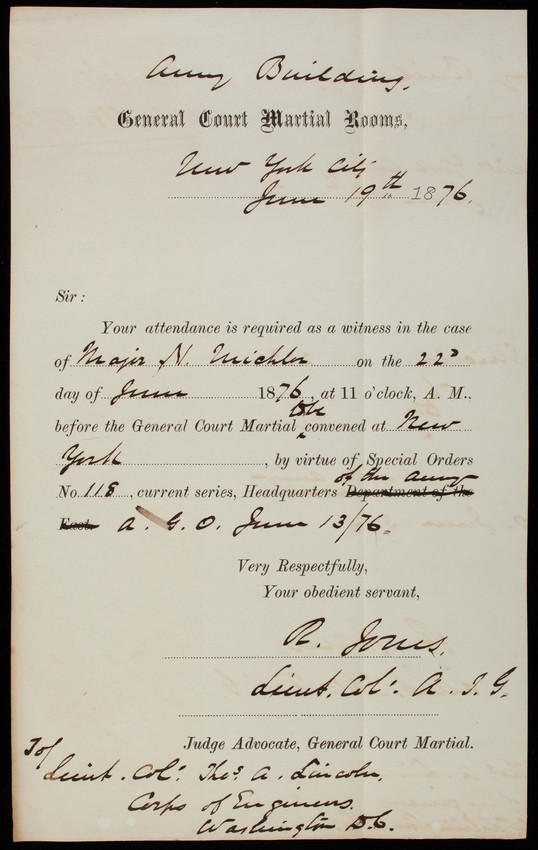 Army Building,
General Court Martial Rooms,
New York City
June 19th 1876.
Sir:
Your attendance is required as a witness in the case
of Major N. Michler on the 22d
day of June 1876, at 11 o'clock, A. M.,
before the General Court Martial to be convened at New
York, by virtue of Special Orders
No. 118, current series, Headquarters Department of the of the Army
East. A. G. O. June 13/76.
Very Respectfully,
Your obedient servant,
R. Jones,
Lieut. Col. A. I. G.
Judge Advocate, General Court Martial.
To/
Lieut. Col. Thos. A. Lincoln,
Corps of Engineers.
Washington D.C.